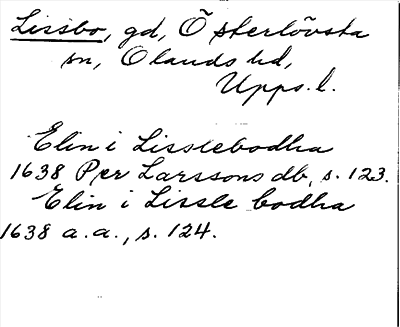 Lissbo, gd, Österlövsta
sn, Olands hd,
Upps. l.
Elin i Lisslebodha
1638 Per Larssons db, s. 123.
Elin i Lissle bodha
1638 a.a., s. 124.